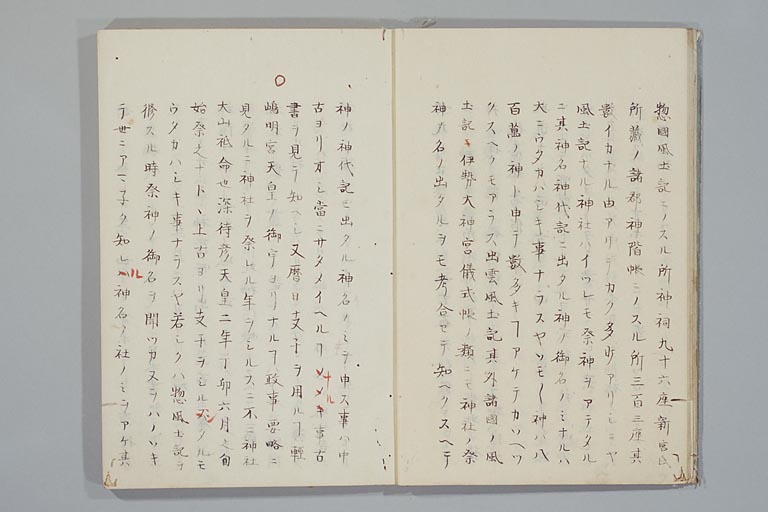 惣國風土記ニノスル所神祠九十六座新宮氏
所蔵ノ諸郡神階帳ニノスル所三百三座其
数イカナル由アリテカク多少アリシニヤ
風土記ナル神社ハイツレモ祭神ヲアテタル
ニ其神名神代記ニ出タル神ノ御名ノミナルハ
大ニウタカハシキ事ナラスヤソモ〱神ハ八
百萬ノ神ト申テ数多キヿアケテカソヘツ
クスヘクモアラス出雲風土記其外諸國ノ風
土記 伊勢大神宮儀式帳ノ類ニモ神社ノ祭
神ノ名ノ出タルヲモ考合セテ知ヘクスヘテ
神ノ神代記ニ出タル神名ノミニテ申ス事ハ中
古ヨリオシ當ニサタメイヘルヿ ナル メキ事古
書ヲ見テ知ヘシ又暦日支干ヲ用ルヿ輕
嶋明宮天皇ノ御宇ヨリナルヿ政事要略ニ
見タルニ神社ヲ祭レル年ヲシルスニ不三神社
大山祇命也深待彦天皇二年丁卯六月之旬
始祭之ナト、上古ヨリ支干ヲシルシ タルモ
ウタカハシキ事ナラスヤ若シクハ惣風土記ヲ
修スル時祭神ノ御名ヲ聞ツカスラハノソキ
テ世ニアマネク知レ ハル 神名ノ社ノミヲアケ其